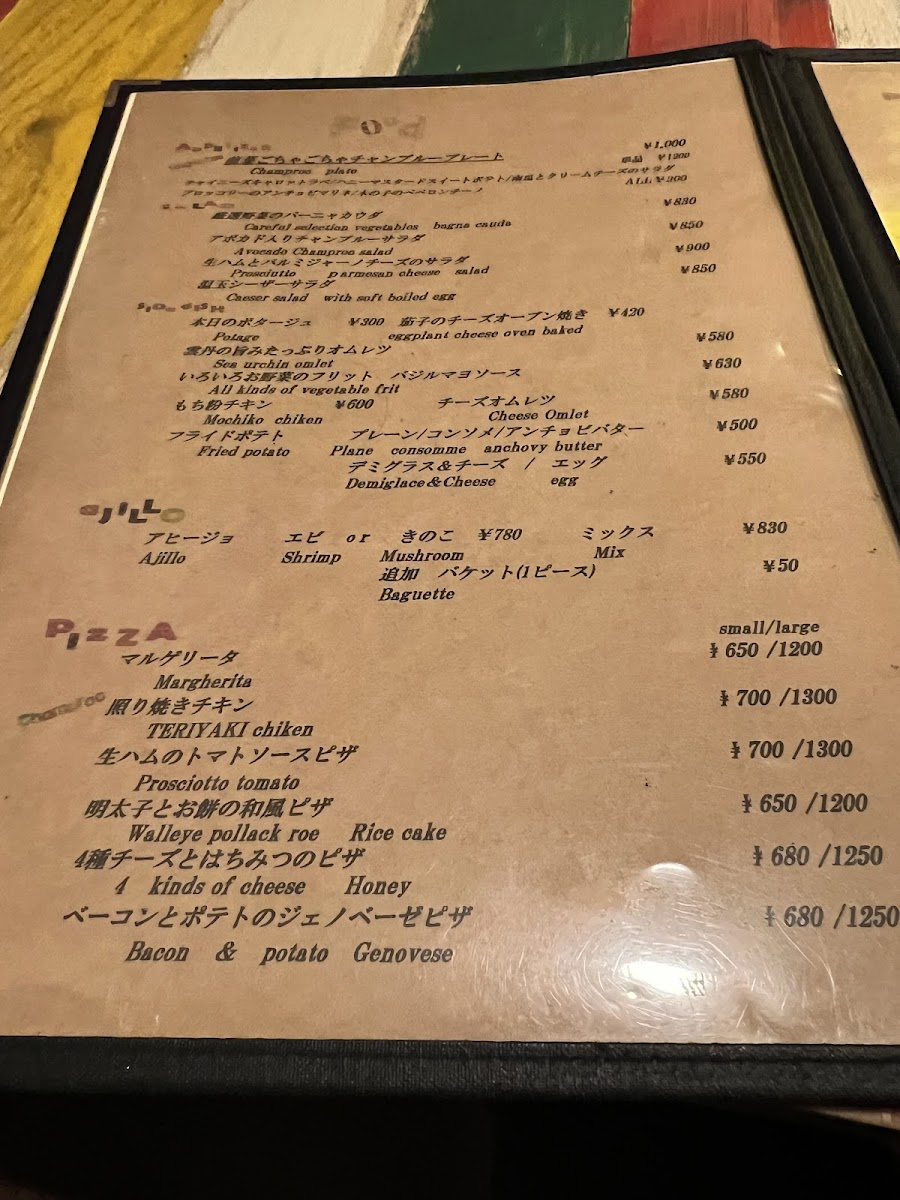 Appetizer
¥1,000
前菜ごちゃごちゃチャンプループレート
単品 ¥1200
Champroo plate
チャイニーズキャロットラペ/ハニーマスタードスイートポテト/南瓜とクリームチーズのサラダ
ブロッコリーのアンチョビマリネ/木の子のペペロンチーノ ALL¥300
厳選野菜のバーニャカウダ ¥830
Careful selection vegetables bagna cauda
アボカド入りチャンプルーサラダ ¥850
Avocado Champroo salad
生ハムとパルミジャーノチーズのサラダ ¥900
Prosciutto parmesan cheese salad
温玉シーザーサラダ ¥850
Caeser salad with soft boiled egg
SIDE DISH
本日のポタージュ ¥300 茄子のチーズオーブン焼き ¥420
Potage eggplant cheese oven baked
雲丹の旨みたっぷりオムレツ ¥580
Sea urchin omlet
いろいろお野菜のフリット バジルマヨソース ¥630
All kinds of vegetable frit
もち粉チキン ¥600 チーズオムレツ ¥580
Mochiko chiken Cheese Omlet
フライドポテト プレーン/コンソメ/アンチョビバター ¥500
Fried potato Plane consomme anchovy butter
デミグラス&チーズ / エッグ ¥550
Demiglace&Cheese egg
aJILLO
アヒージョ エビ or きのこ ¥780 ミックス ¥830
Ajillo Shrimp Mushroom Mix
追加 バケット(1ピース) ¥50
Baguette
PIZZA
small/large
マルゲリータ ¥650 /1200
Margherita
Champroo
照り焼きチキン ¥700 /1300
TERIYAKI chiken
生ハムのトマトソースピザ ¥700 /1300
Prosciotto tomato
明太子とお餅の和風ピザ ¥650 /1200
Walleye pollack roe Rice cake
4種チーズとはちみつのピザ ¥680 /1250
4 kinds of cheese Honey
ベーコンとポテトのジェノベーゼピザ ¥680 /1250
Bacon & potato Genovese